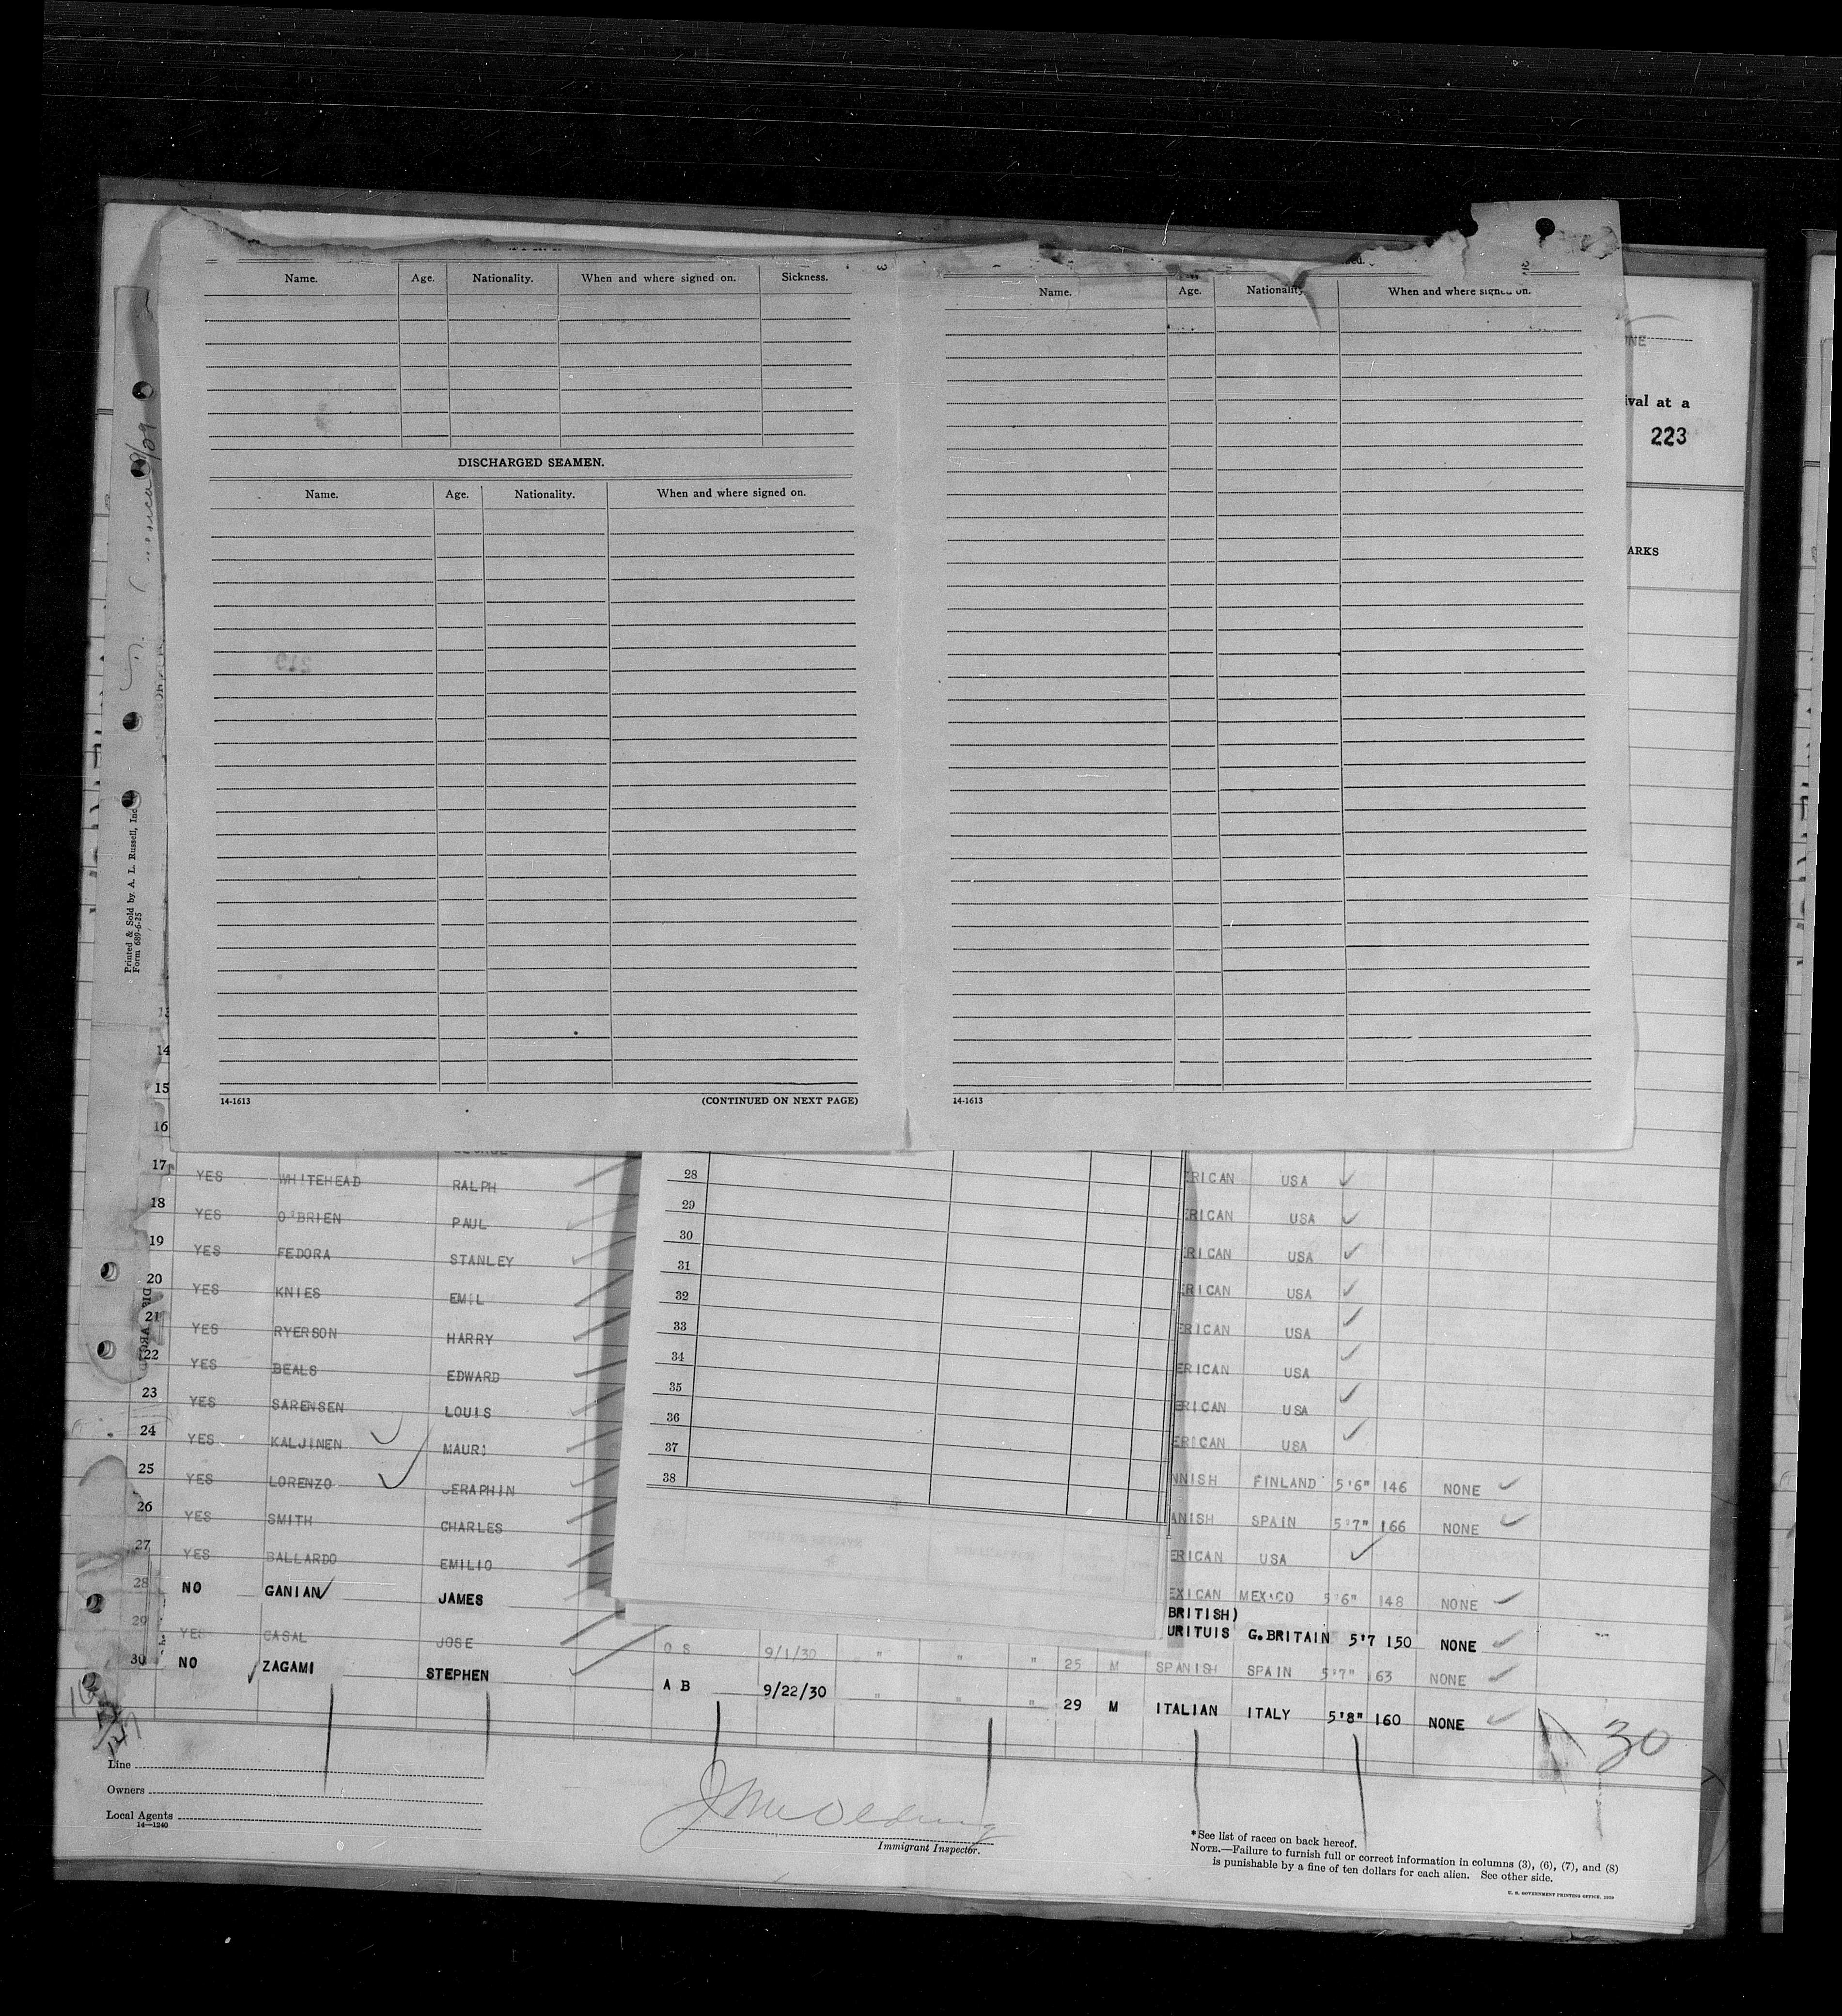 Name. Age. Nationality. When and where signed on. Sickness.
DISCHARGED SEAMEN.
Name. Age. Nationality. When and where signed on.
14-1613 (CONTINUED ON NEXT PAGE)
Name. Age. Nationality When and where signed on.
14-1613
ONE
ival at a
223
ARKS
Printed & Sold by A. L. Russell, Inc
Form 689-6-25
14
15
16
17 YES WHITEHEAD RALPH 28 ERICAN USA
18 YES O'BRIEN PAUL 29 ERICAN USA
19 YES FEDORA STANLEY 30 ERICAN USA
20 YES KNIES EMIL 31 ERICAN USA
21 YES RYERSON HARRY 32 ERICAN USA
22 YES BEALS EDWARD 33 ERICAN USA
23 YES SARENSEN LOUIS 34 ERICAN USA
24 YES KALJINEN MAURI 35 ERICAN USA
25 YES LORENZO SERAPHIN 36 NNISH FINLAND 5'6" 146 NONE
26 YES SMITH CHARLES 37 ANISH SPAIN 5'7" 166 NONE
27 YES BALLARDO EMILIO 38 ERICAN USA
28 NO GANIAN JAMES EXICAN MEXICO 5'6" 148 NONE
BRITISH)
URITUIS G.BRITAIN 5'7 150 NONE
29 YES CASAL JOSE O S 9/1/30 " " " 25 M SPANISH SPAIN 5'7" 163 NONE
30 NO ZAGAMI STEPHEN A B 9/22/30 " " " 29 M ITALIAN ITALY 5'8" 160 NONE
30
Line
Owners
Local Agents
14—1240
Immigrant Inspector.
*See list of races on back hereof.
NOTE.—Failure to furnish full or correct information in columns (3), (6), (7), and (8)
is punishable by a fine of ten dollars for each alien. See other side.
U. S. GOVERNMENT PRINTING OFFICE. 1929